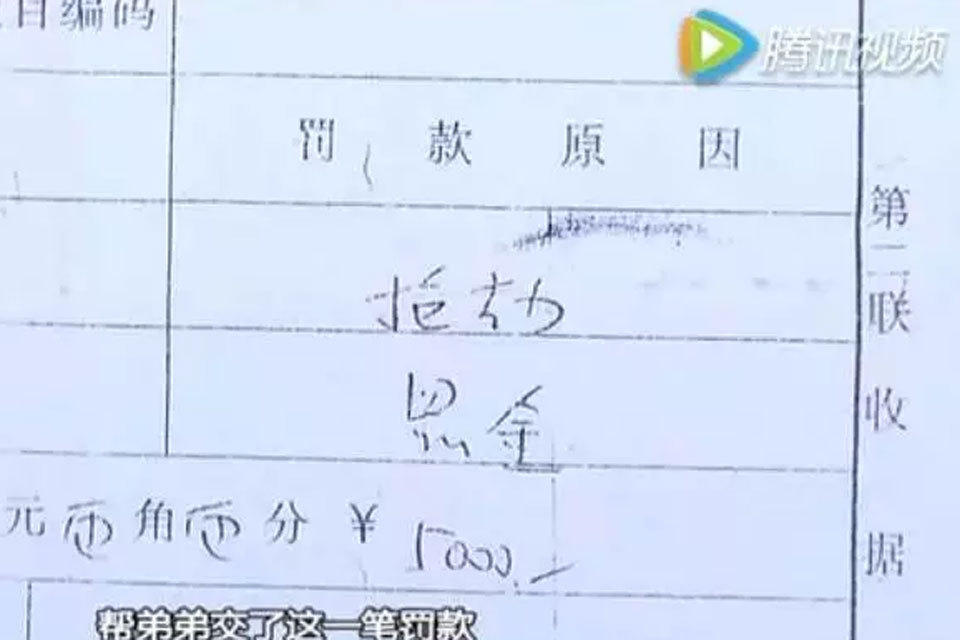 目编码
腾讯视频
罚款原因
抢劫
罚金
元零角零分 ¥ 5000.-
第二联收据
帮弟弟交了这一笔罚款